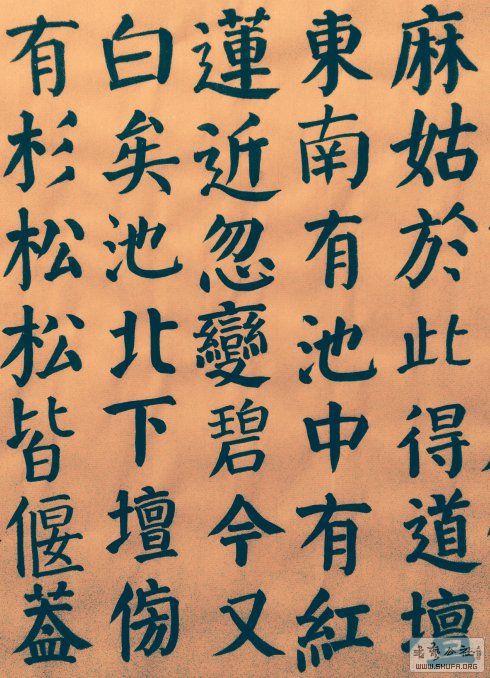 麻姑於此得道壇
東南有池中有紅
蓮近忽變碧今又
白矣池北下壇傍
有杉松松皆偃蓋
WWW.SHUFA.ORG